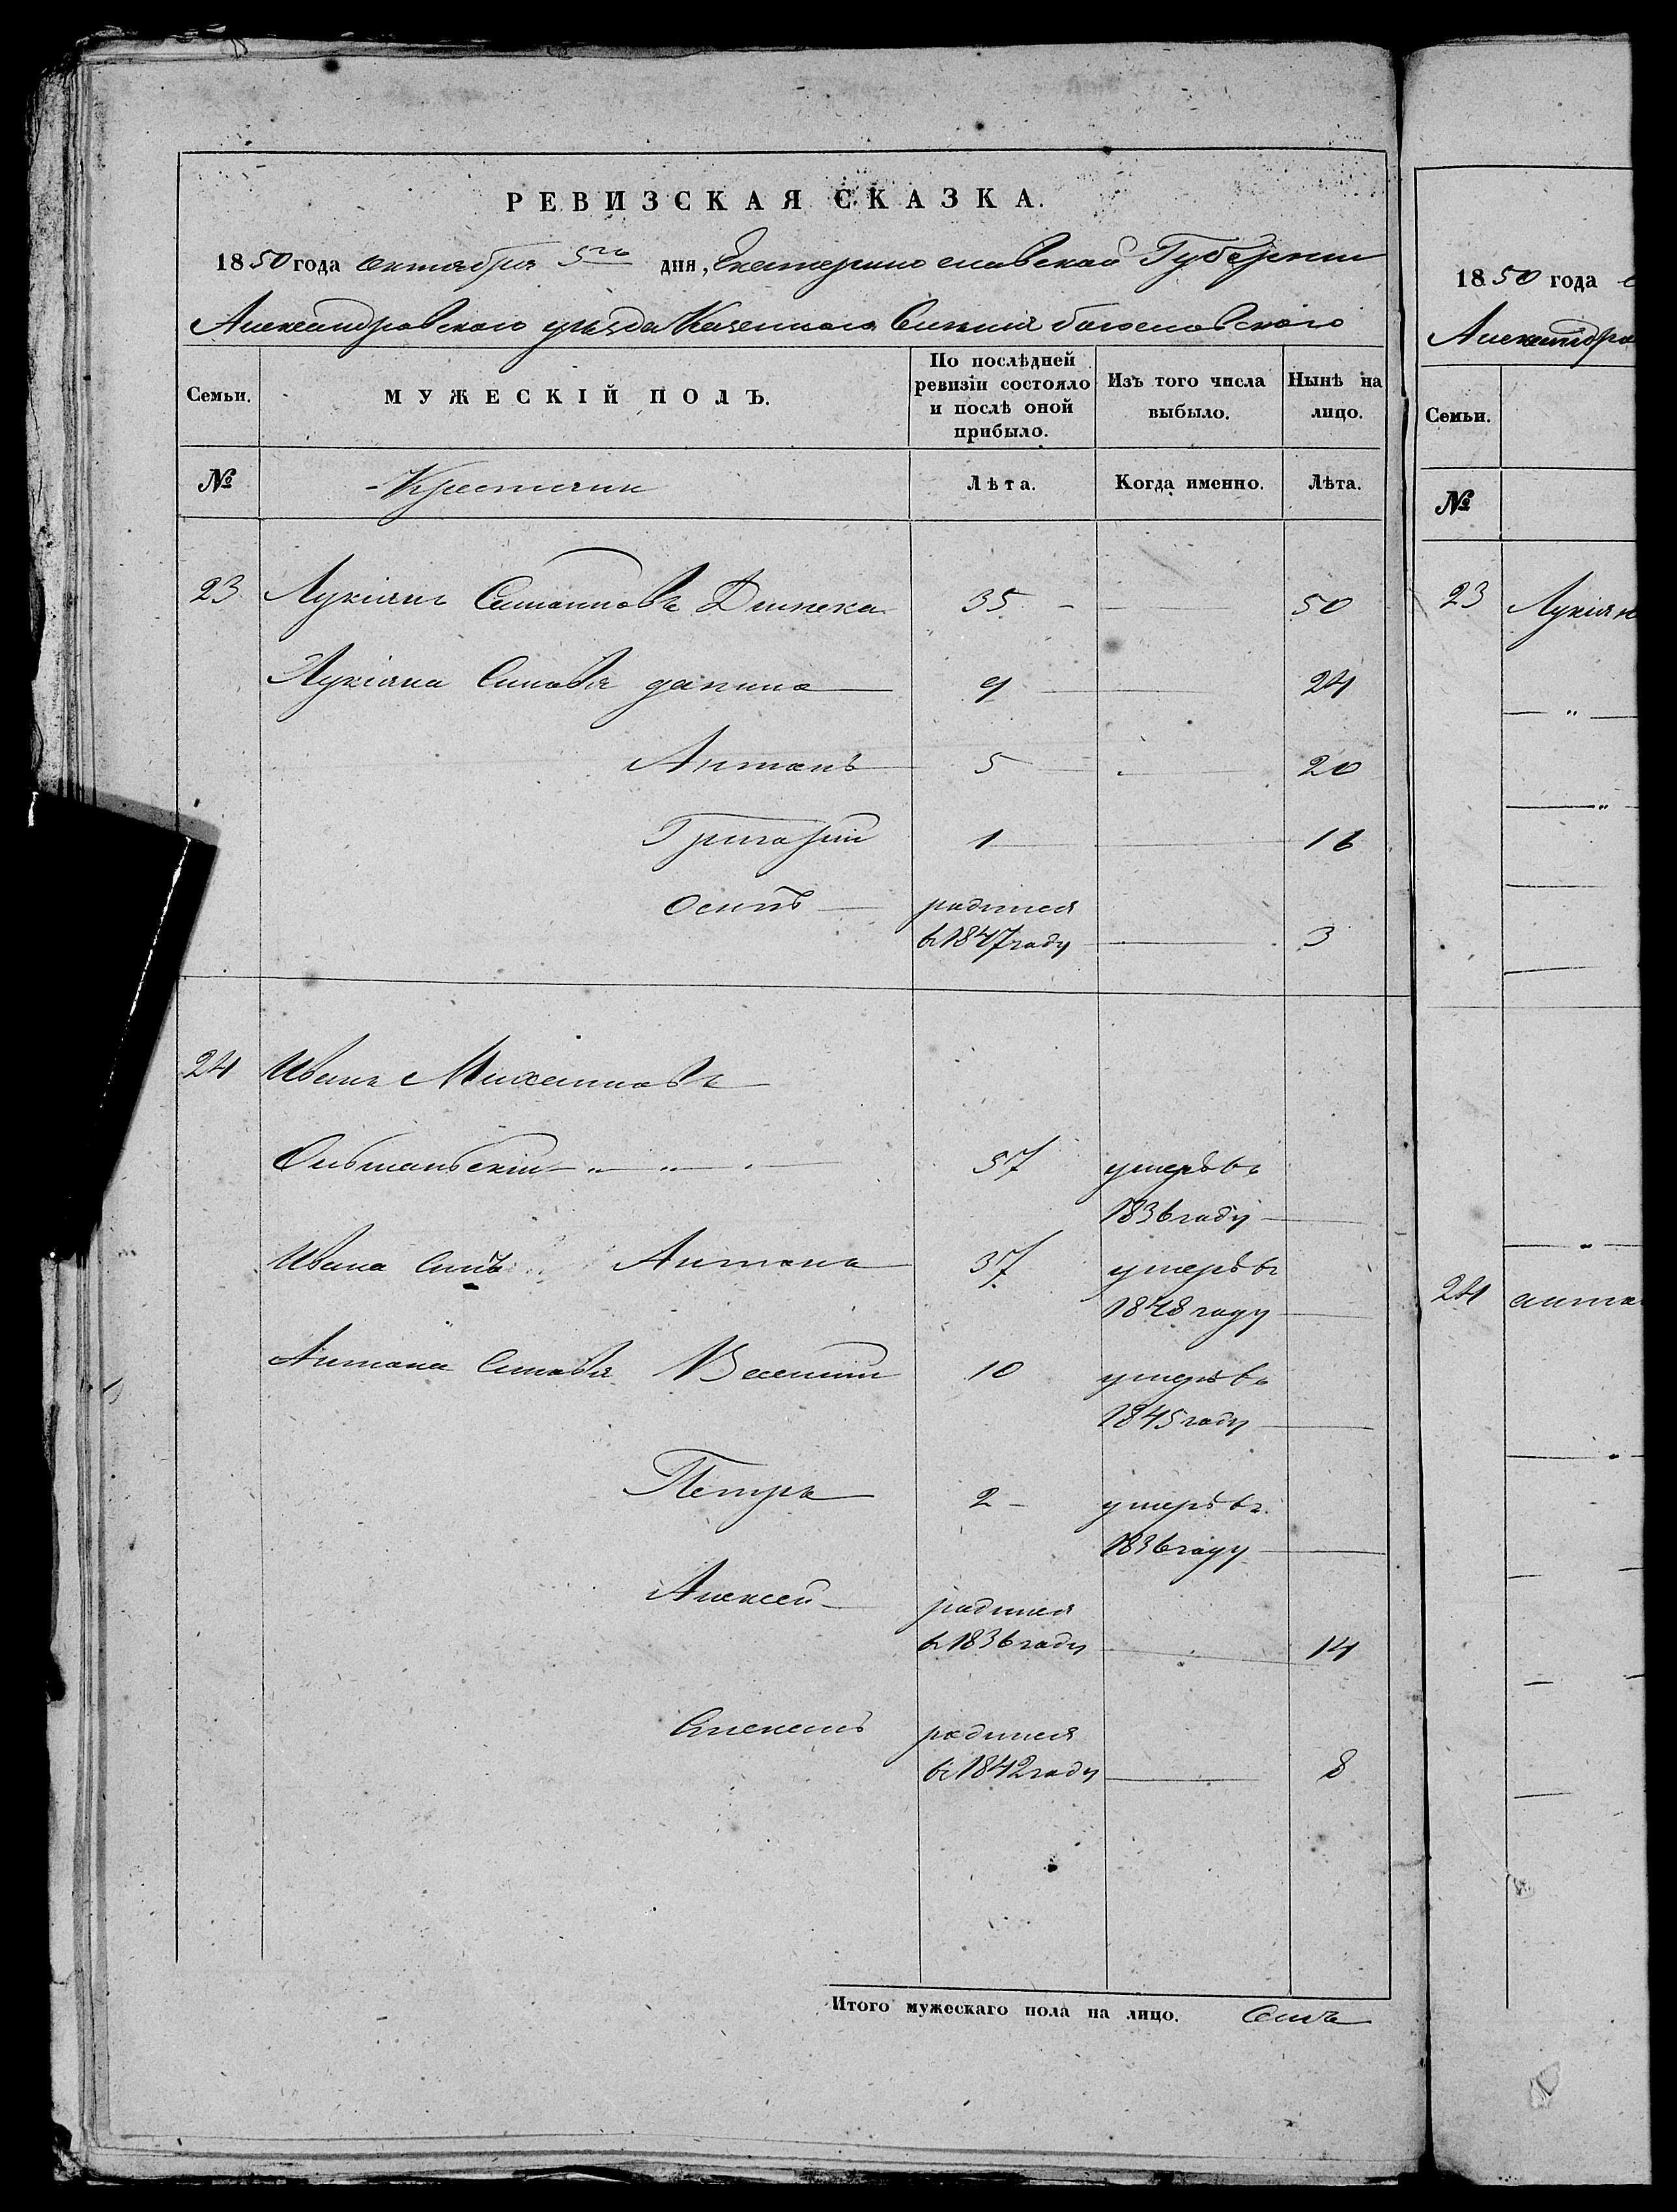 РЕВИЗСКАЯ СКАЗКА.
1850 года октября 5го дня, Екатеринославской Губернии
Александровского уезда Казенного Селения богословского
Семьи.
МУЖЕСКІЙ ПОЛЪ.
По послѣдней ревизіи состояло и послѣ оной прибыло.
Изъ того числа выбыло.
Нынѣ на лицо.
№
Крестьяни
Лѣта.
Когда именно.
Лѣта.
23 Лукіянъ 35 50
Лукіяна Синовья данило 9 24
Антонъ 5 20
Григорий 1 16
Осипъ родился
в 1847 году 3
24 Иванъ Михайловъ
57 умеръ въ
1836 году
Ивана Синъ Антонъ 37 умеръ въ
1848 году
Антона Синовья Василий 10 умеръ въ
1845 году
Петръ 2 умеръ въ
1836 году
Алексей родился
в 1836 году 14
родился
в 1842 году 8
Итого мужескаго пола на лицо. Семь
1850 года
Семьи.
№
23 Лукіян
24